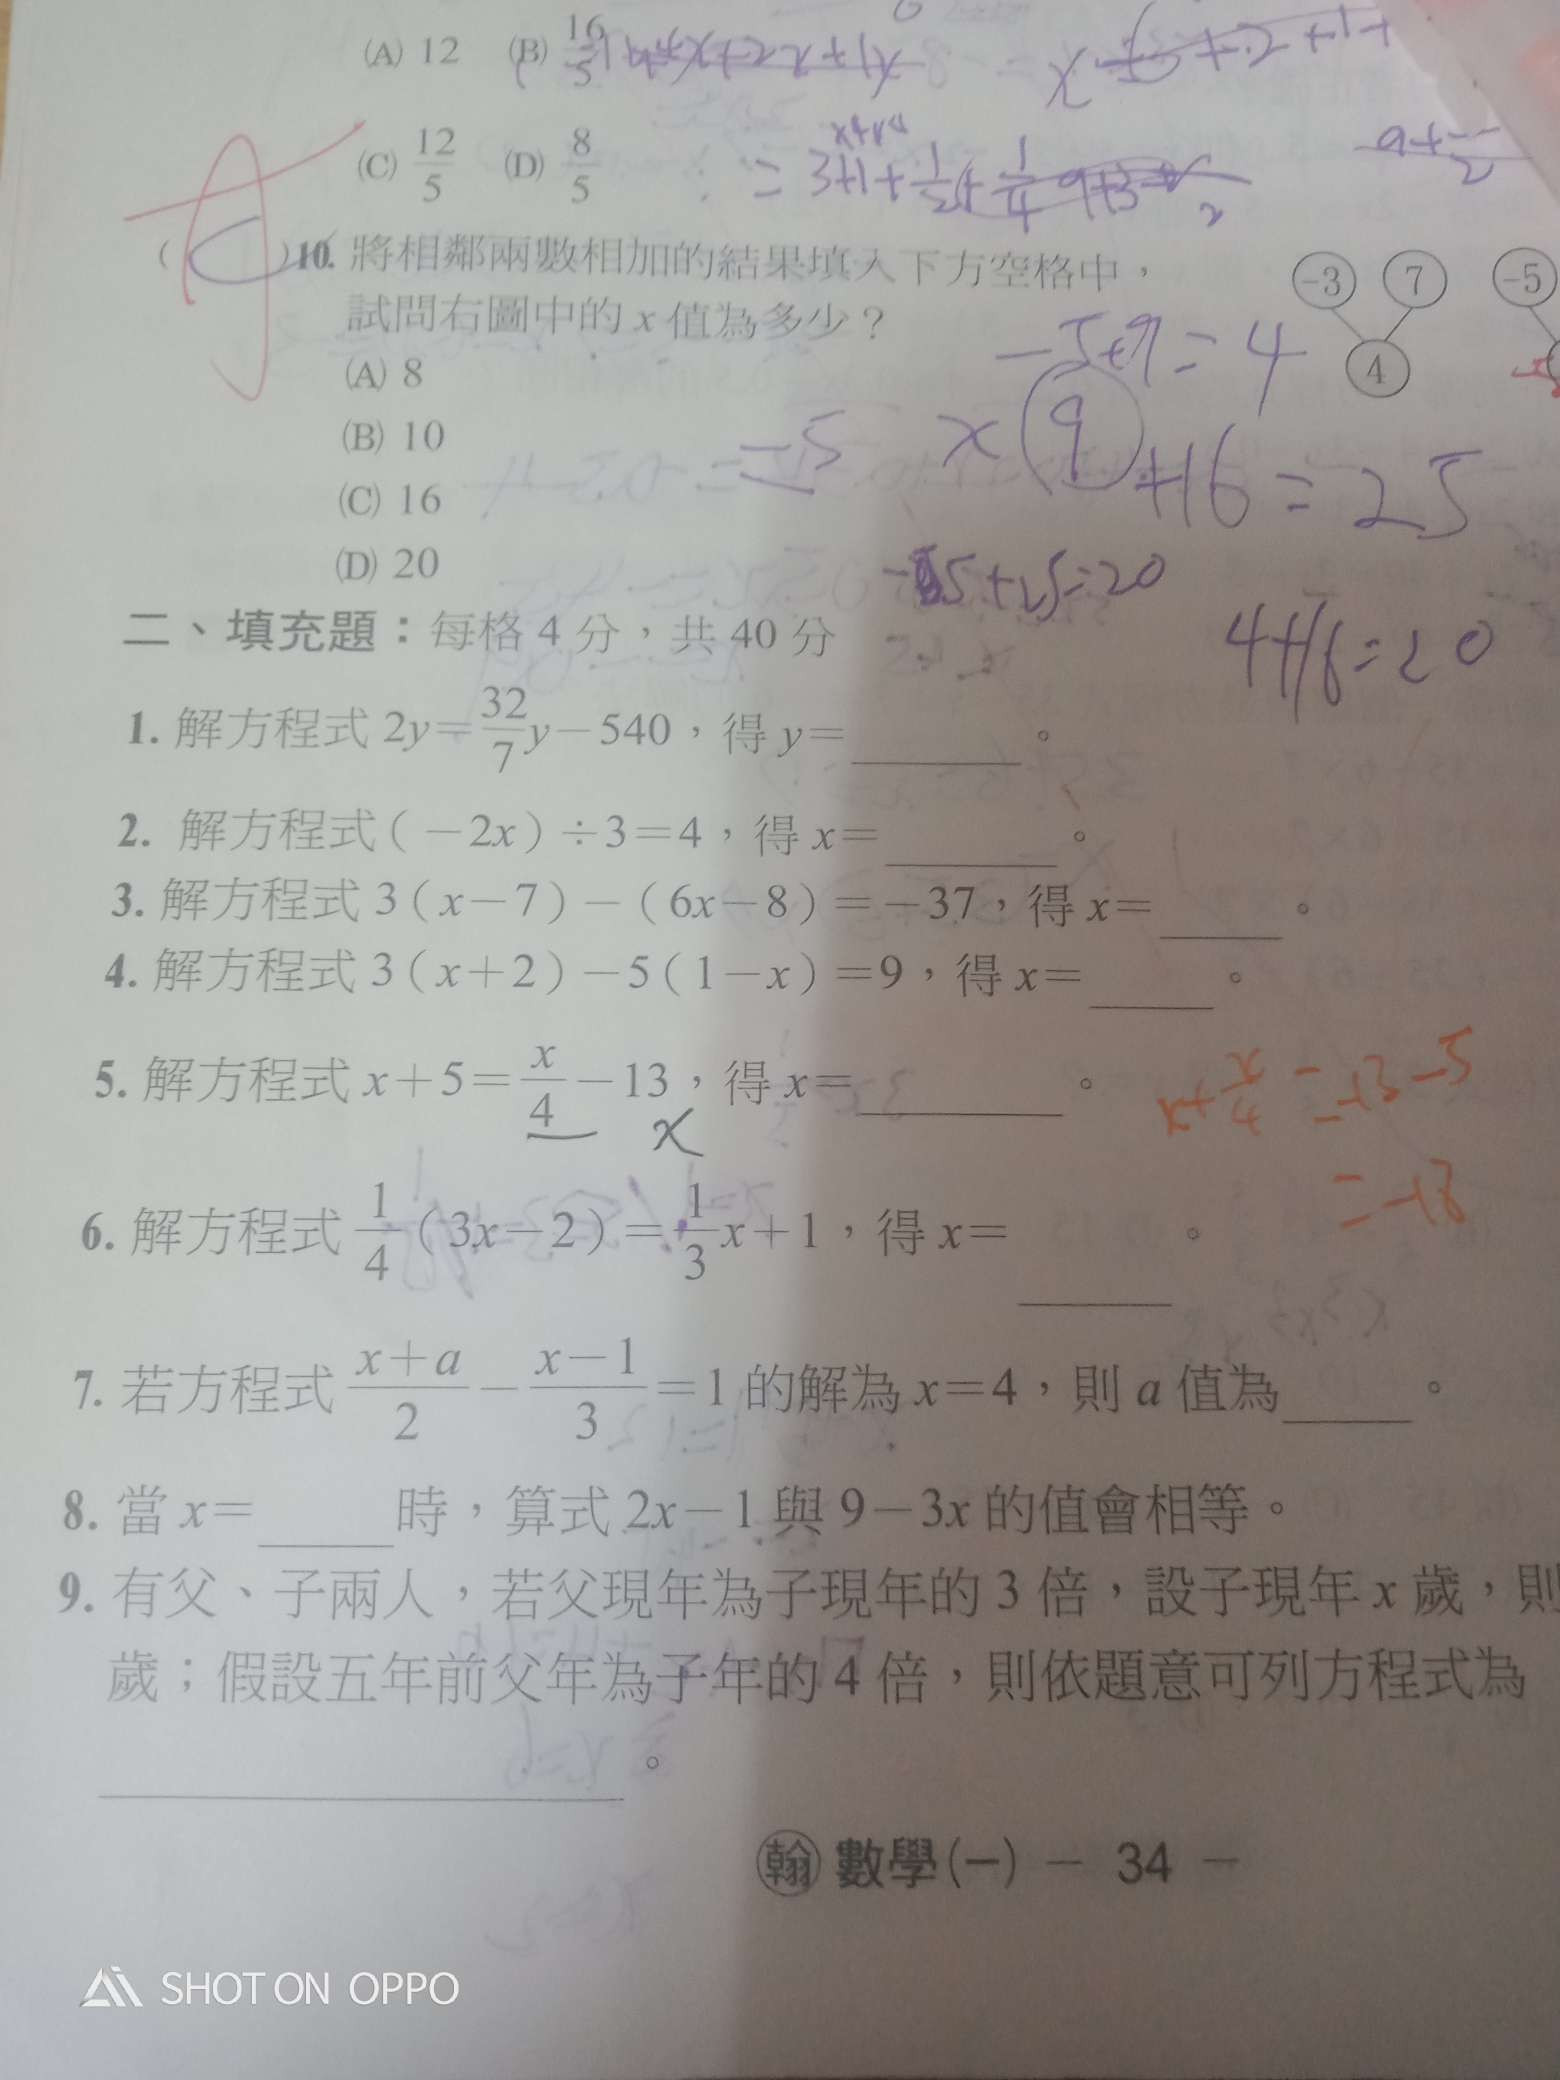 (A) 12 (B) 16/5
(C) 12/5 (D) 8/5
= 3+1+1/2+1/4
( )10. 將相鄰兩數相加的結果填入下方空格中，
試問右圖中的 x 值為多少？
-3 7 -5
4
(A) 8
(B) 10
(C) 16
(D) 20
-5+9=4
-5 x 9+16=25
-5+25=20
4+16=20
二、填充題：每格 4 分，共 40 分
1. 解方程式 2y=32/7y-540，得 y=______。
2. 解方程式(-2x)÷3=4，得 x=______。
3. 解方程式 3(x-7)-(6x-8)=-37，得 x=______。
4. 解方程式 3(x+2)-5(1-x)=9，得 x=______。
5. 解方程式 x+5=x/4-13，得 x=______。
x
x+x/4=-13-5
=-18
6. 解方程式 1/4(3x-2)=1/3x+1，得 x=______。
7. 若方程式 x+a/2-x-1/3=1 的解為 x=4，則 a 值為______。
8. 當 x=______時，算式 2x-1 與 9-3x 的值會相等。
9. 有父、子兩人，若父現年為子現年的 3 倍，設子現年 x 歲，則
歲；假設五年前父年為子年的 4 倍，則依題意可列方程式為
______。
翰 數學(一) － 34 －
SHOT ON OPPO